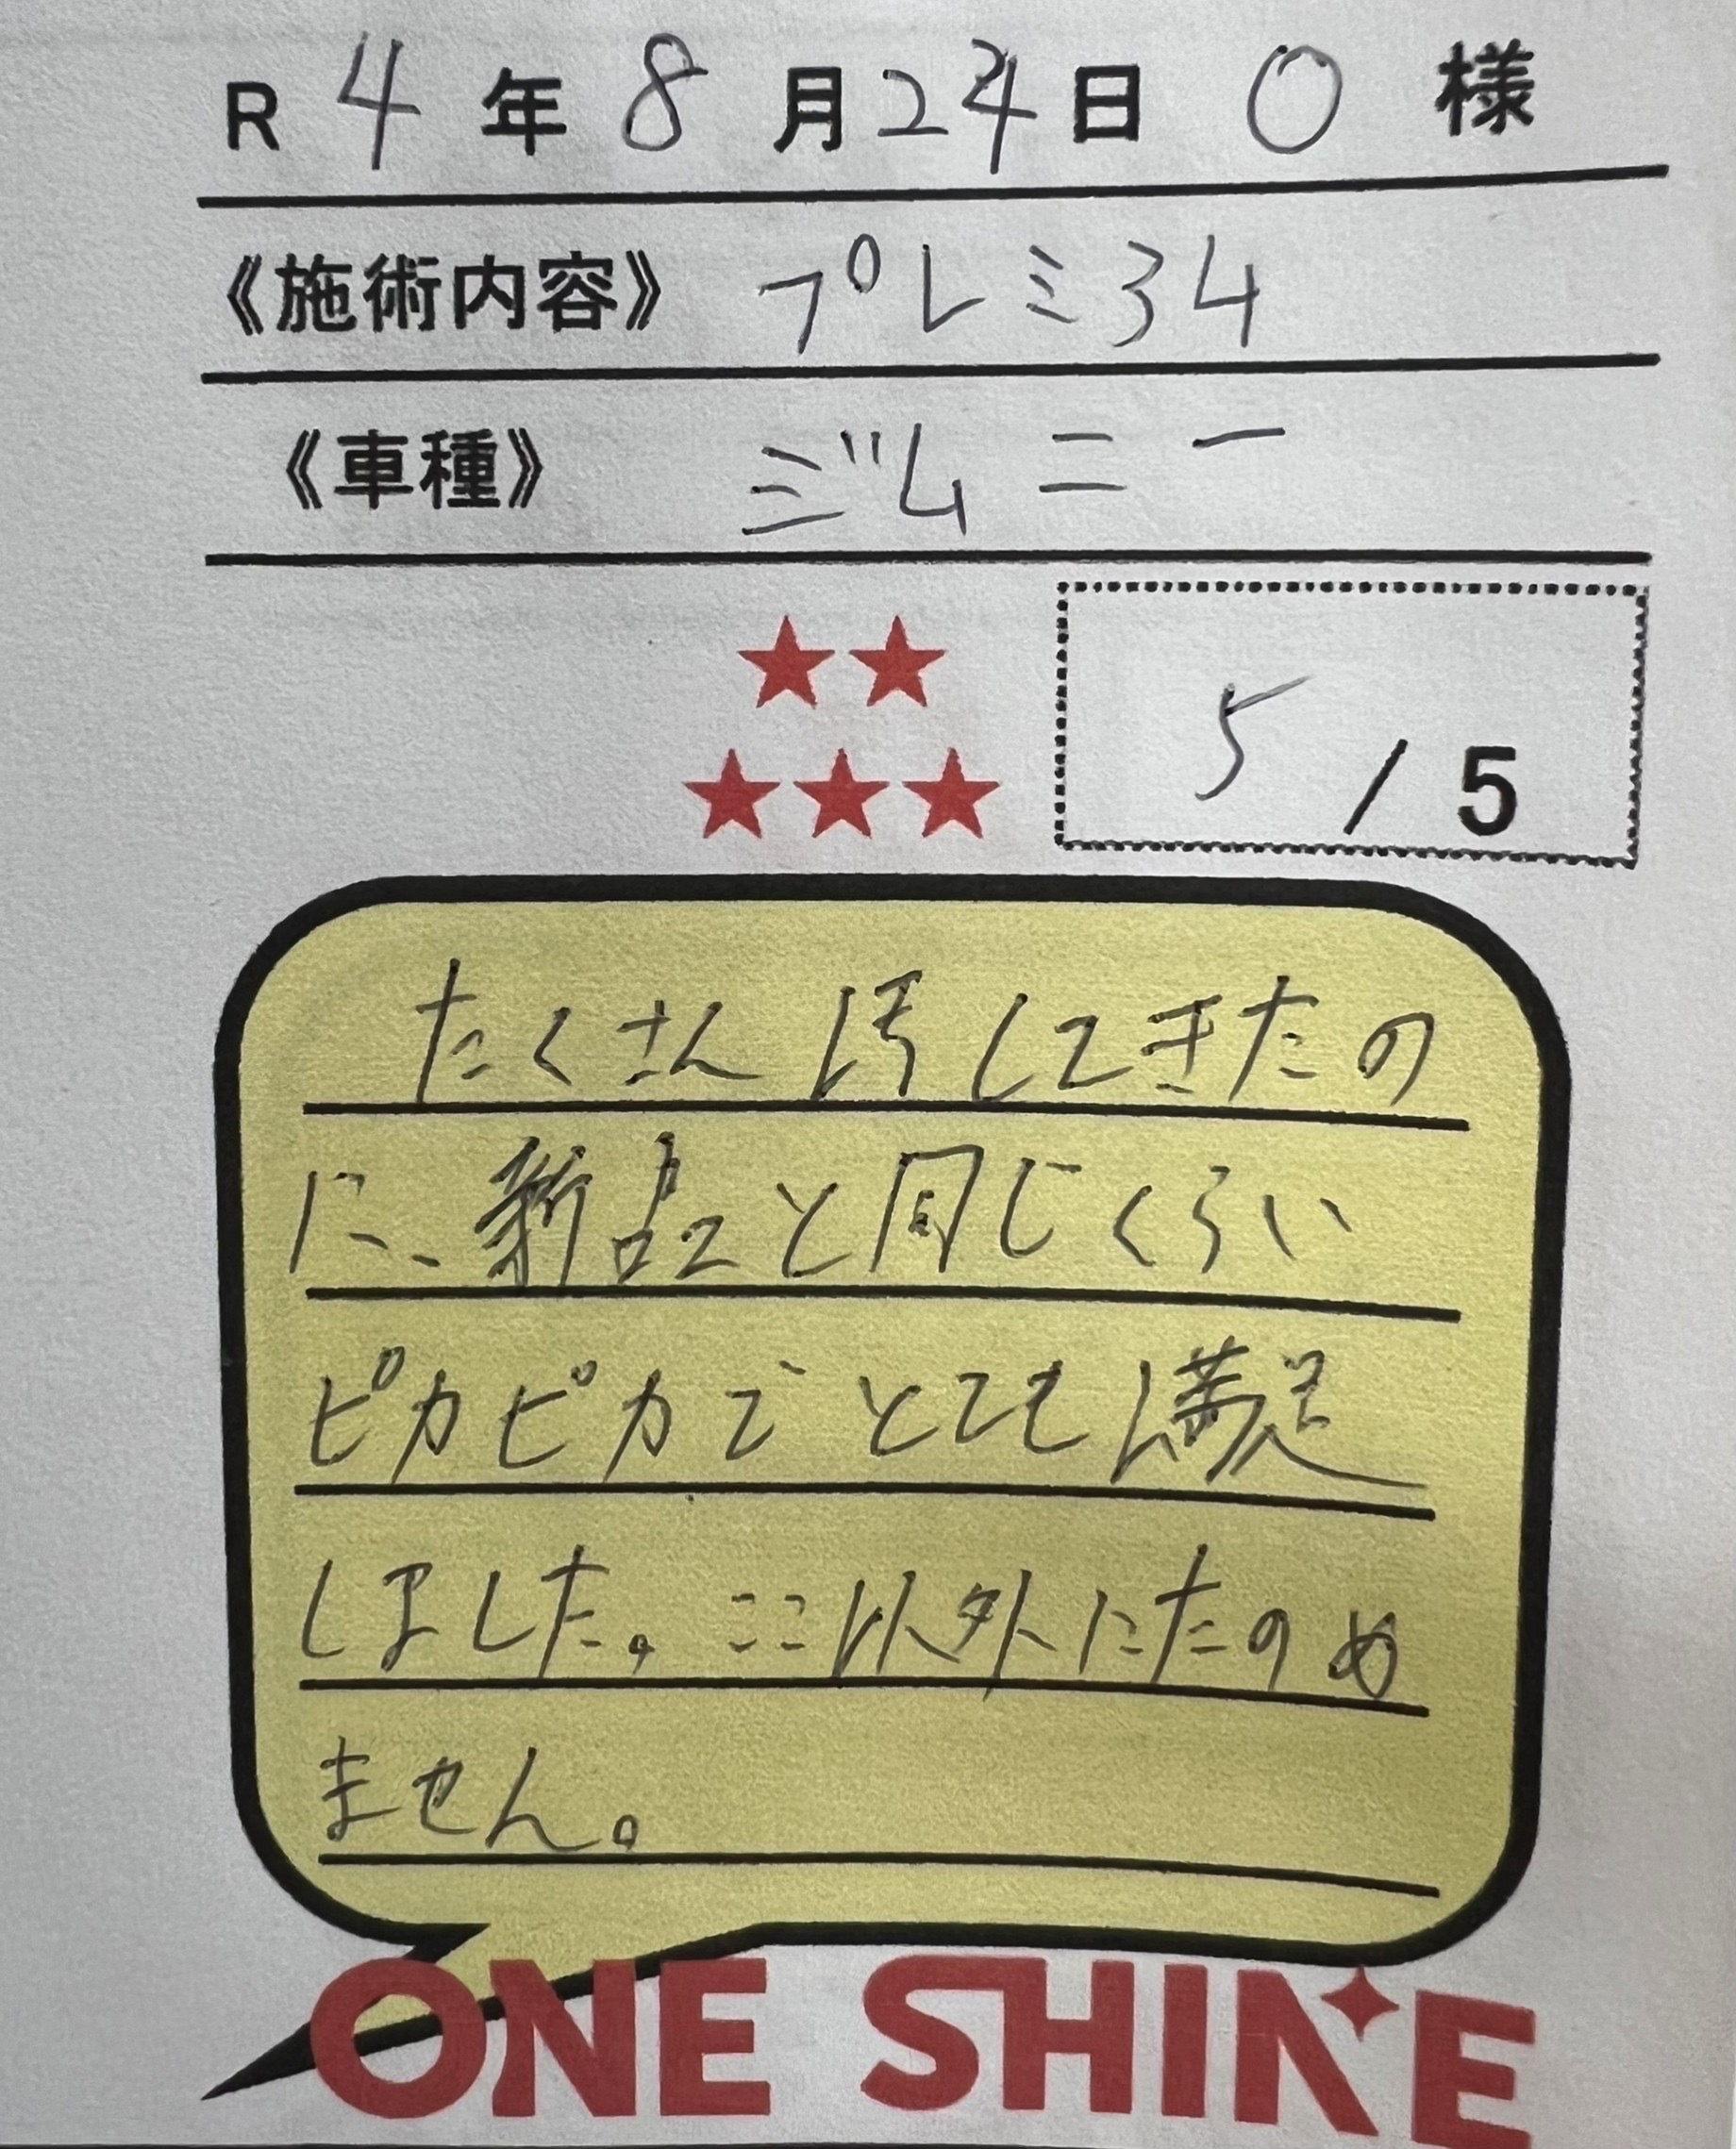 R 4 年 8 月 24 日 O 様
《施術内容》 プレミアム
《車種》 ジムニー
★★
★★★
5 / 5
たくさん汚してきたの
に、新品と同じくらい
ピカピカでとても満足
しました。ここ以外にたのめ
ません。
ONE SHINE